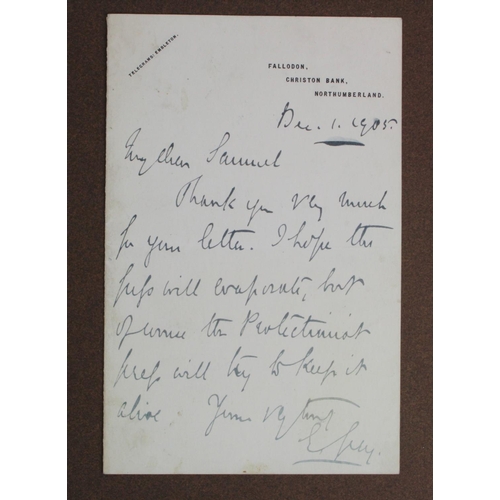 TELEGRAMS: EMBLETON.
FALLODON,
CHRISTON BANK,
NORTHUMBERLAND.
Dec. 1. 1905.
My dear Samuel
Thank you very much
for your letter. I hope the
will evaporate, but
of course the Protectionist
press will try to keep it
alive. Yours very truly
E Grey.